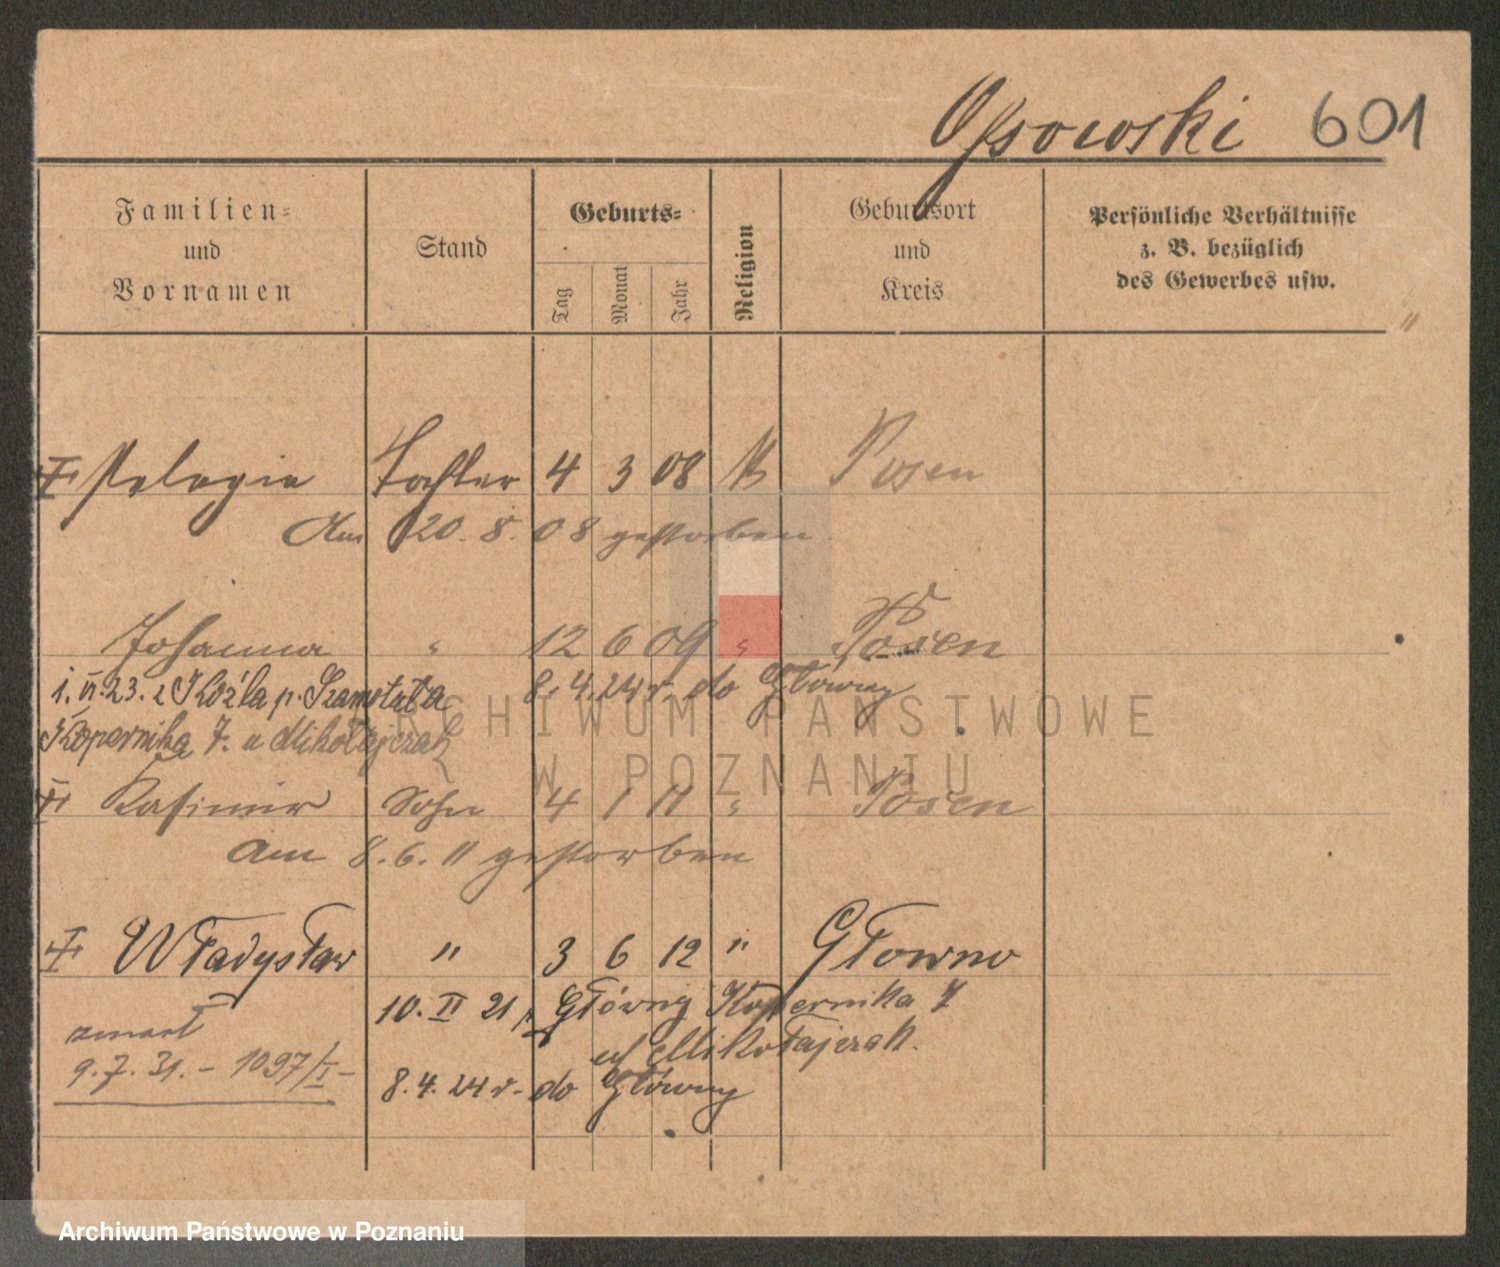 Ossowski 601
Familien- und Vornamen
Stand
Geburts-
Tag
Monat
Jahr
Religion
Geburtsort und Kreis
Persönliche Verhältnisse z. B. bezüglich des Gewerbes usw.
Pelagia Tochter 4 3 08 Posen
Am 20. 8. 08 gestorben
Johanna " 12 6 09 " Posen
1. VI. 23. z Koźla p. Szamotuła 8. 4. 24 r. do Główny
Kopernika 7. u Mikołajczak
Kasimir Sohn 4 1 11 " Posen
Am 8. 6. 11 gestorben
Władysław " 3 6 12 " Głowno
10. II 21 Główny Kopernika 7
u Mikołajczak.
zmarł
9. 7. 31. - 1097/I -
8. 4. 24 r. do Główny
ARCHIWUM PAŃSTWOWE
W POZNANIU
Archiwum Państwowe w Poznaniu